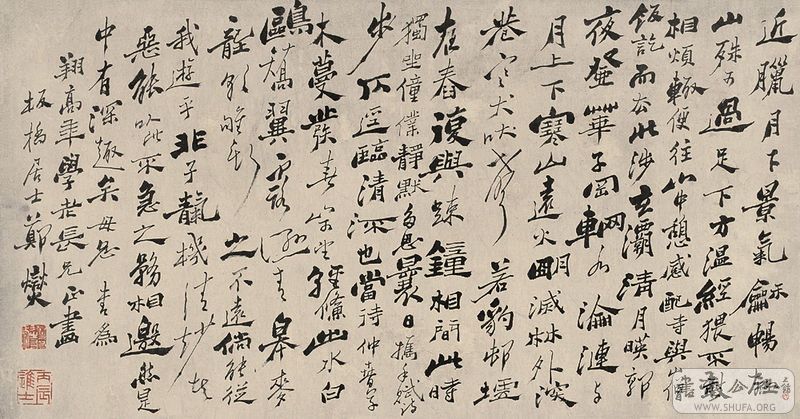 近臘月下景氣龢暢
山殊可過足下方溫經猥不
相煩輒便往山中憩感配寺與山僧
飯訖而去北涉玄灞清月暎郭
夜登華子岡輞水淪漣與
月上下寒山遠火明滅林外深
巷寒犬吠聲若豹邨墟
夜舂復與疎鐘相間此時
獨坐僮僕靜默多思曩日攜手賦詩
步仄逕臨清流也當待仲春草
木蔓發春山可望輕鯈出水白
鷗矯翼露濕青皋麥
隴朝雊斯之不遠倘能從
我遊乎非子天機清妙者
惡能以此不急之務相邀然是
中有深趣矣毋忽 書為
翔高年學老長兄正
板橋居士鄭燮
丙辰進士
WWW.SHUFA.ORG